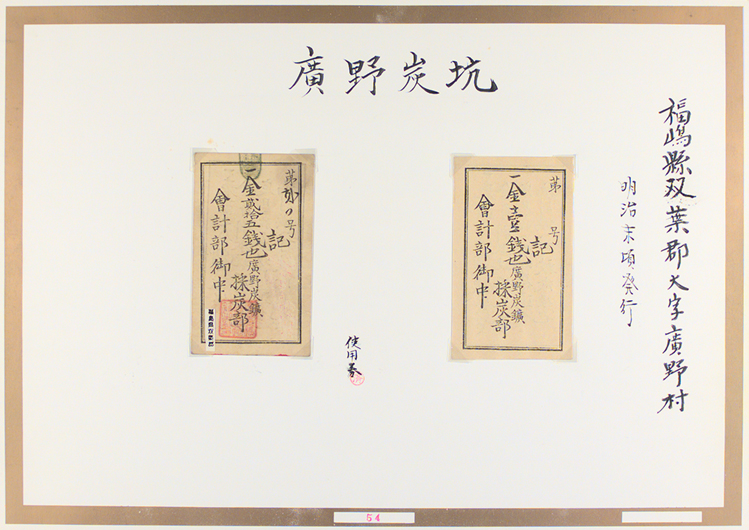 廣野炭坑
福嶋縣双葉郡大字廣野村
明治末頃発行
第 号
記
一金壹銭也
廣野炭鑛
採炭部
會計部御中
第 号
記
一金貳拾五銭也
廣野炭鑛
採炭部
會計部御中
使用券
54